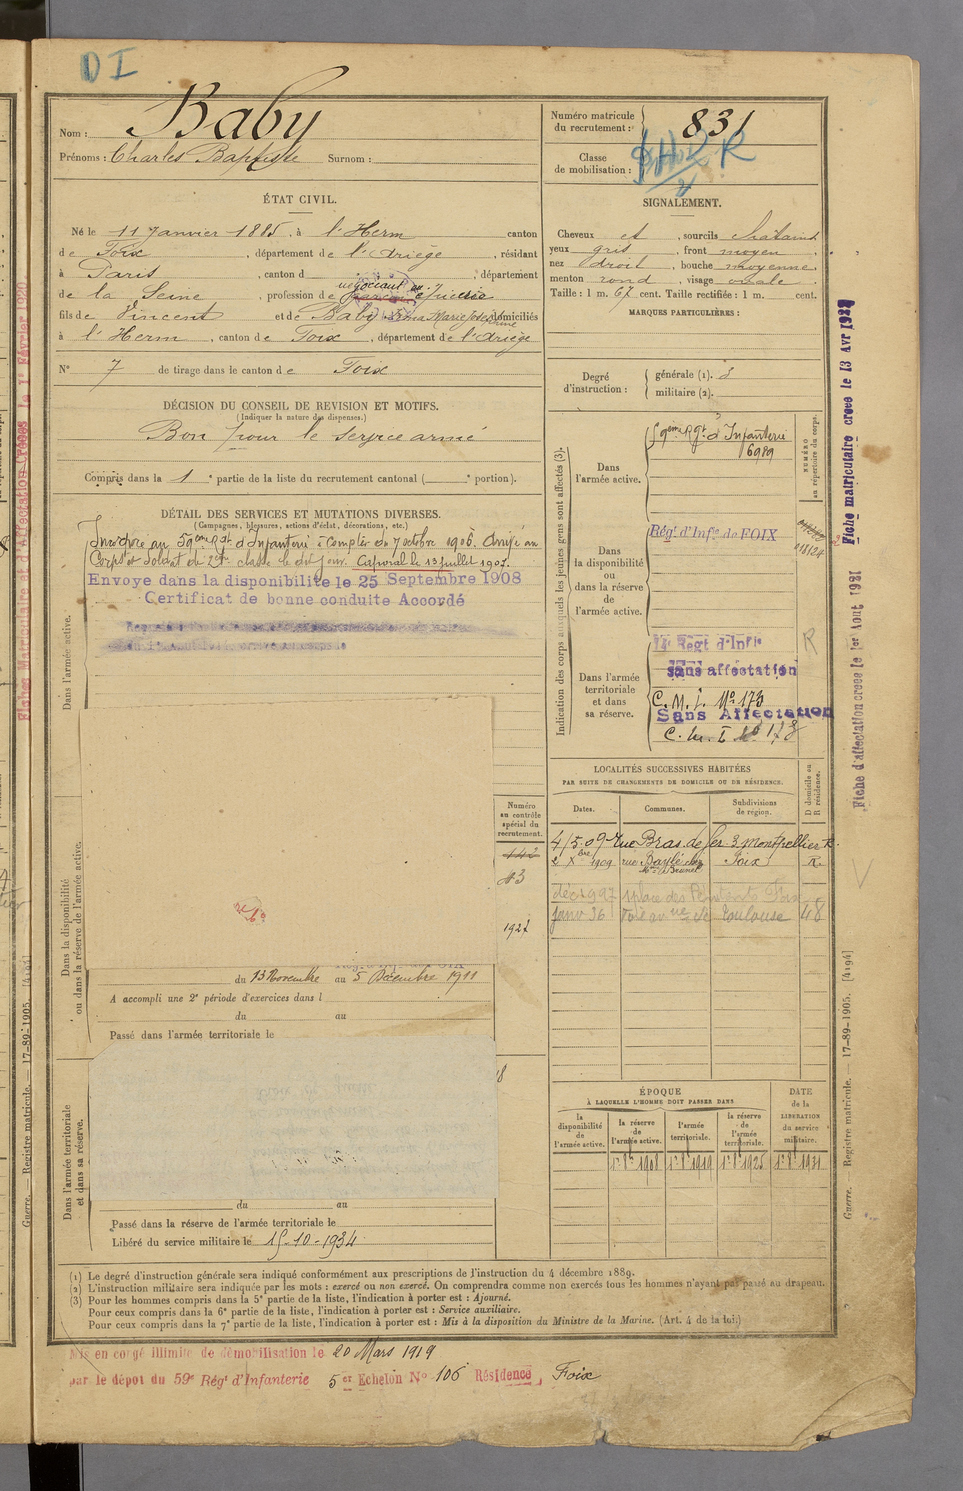 DI
Nom : Baby
Prénoms : Charles Baptiste Surnom :
Numéro matricule du recrutement : 831
Classe de mobilisation : R
ÉTAT CIVIL.
Né le 11 Janvier 1885, à l'Herm canton
de Foix, département de l'Ariège, résidant
à Paris, canton d, département
de la Seine, profession de négociant en
épicerie
fils de Vincent et de Baby Marie domiciliés
à l'Herm, canton de Foix, département de l'Ariège
N° 7 de tirage dans le canton de Foix
DÉCISION DU CONSEIL DE REVISION ET MOTIFS.
(Indiquer la nature des dispenses.)
Bon pour le service armé
Compris dans la 1e partie de la liste du recrutement cantonal ( e portion).
DÉTAIL DES SERVICES ET MUTATIONS DIVERSES.
(Campagnes, blessures, actions d'éclat, décorations, etc.)
Incorporé au 59eme Rgt d'Infanterie à Compter du 7 octobre 1906. Arrivé au
Corps et soldat de 2eme classe le dit jour. Caporal le 13 juillet 1907.
Envoye dans la disponibilite le 25 Septembre 1908
Certificat de bonne conduite Accordé
Dans l'armée active.
Dans la disponibilité ou dans la réserve de l'armée active.
Dans l'armée territoriale et dans sa réserve.
Numéro au contrôle spécial du recrutement.
142
43
1927
du 13 Novembre au 5 Décembre 1911
A accompli une 2e période d'exercices dans l
du au
Passé dans l'armée territoriale le
du au
Passé dans la réserve de l'armée territoriale le
Libéré du service militaire le 15-10-1934
SIGNALEMENT.
Cheveux et, sourcils chatains
yeux gris, front moyen,
nez droit, bouche moyenne,
menton rond, visage ovale.
Taille : 1 m. 67 cent. Taille rectifiée : 1 m. cent.
MARQUES PARTICULIÈRES :
Degré d'instruction : générale (1). 3
militaire (2).
Indication des corps auxquels les jeunes gens sont affectés (3).
NUMÉRO au répertoire du corps.
Dans l'armée active.
59eme Rgt d'Infanterie
6989
Dans la disponibilité ou dans la réserve de l'armée active.
Régt d'Infie de FOIX
01824
Dans l'armée territoriale et dans sa réserve.
Régt d'Infie
R
sans affectation
C. M. I. No 173
Sans Affectation
C. M. I. 173
LOCALITÉS SUCCESSIVES HABITÉES
PAR SUITE DE CHANGEMENTS DE DOMICILE OU DE RÉSIDENCE.
D domicile ou R résidence.
Dates. Communes. Subdivisions de région.
4/5.09 rue Bras de fer 3 Montpellier R.
2 Xbre 1909 rue Bayle chez Foix R
Mme Brunet
place des Foix
janv 36 Foix av de Toulouse 48
ÉPOQUE
À LAQUELLE L'HOMME DOIT PASSER DANS
DATE de la LIBÉRATION du service militaire.
la disponibilité de l'armée active.
la réserve de l'armée active.
l'armée territoriale.
la réserve de l'armée territoriale.
1er 8bre 1908 1er 8bre 1919 1er 8bre 1925 1er 8bre 1931
(1) Le degré d'instruction générale sera indiqué conformément aux prescriptions de l'instruction du 4 décembre 1889.
(2) L'instruction militaire sera indiquée par les mots : exercé ou non exercé. On comprendra comme non exercés tous les hommes n'ayant pas passé au drapeau.
(3) Pour les hommes compris dans la 5e partie de la liste, l'indication à porter est : Ajourné.
Pour ceux compris dans la 6e partie de la liste, l'indication à porter est : Service auxiliaire.
Pour ceux compris dans la 7e partie de la liste, l'indication à porter est : Mis à la disposition du Ministre de la Marine. (Art. 4 de la loi.)
Mis en congé illimité de démobilisation le 20 Mars 1919
par le dépôt du 59e Régt d'Infanterie 5er Echelon N° 106 Résidence, Foix
Fiches Matriculaire et d'Affectation Créées le 1er Février 1920
Guerre. — Registre matricule. — 17-89-1905. [4194]
Fiche matriculaire creee le 13 Avr
Fiche d'affectation creee le 1er Aout 1931
Guerre. — Registre matricule. — 17-89-1905. [4194]